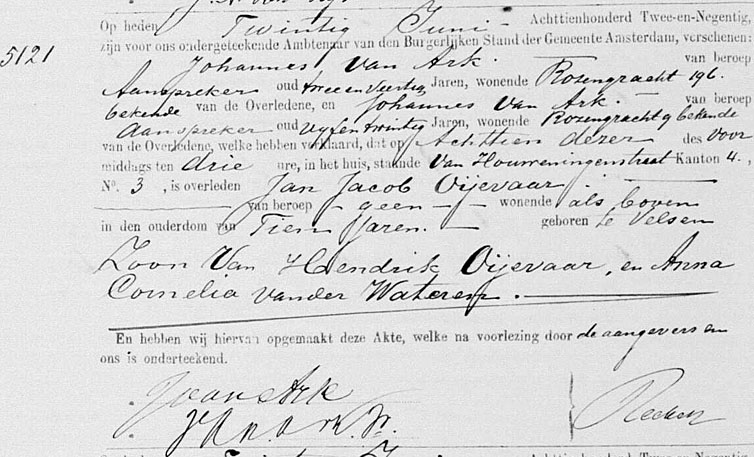 Op heden Twintig Juni Achttienhonderd Twee-en-Negentig,
zijn voor ons ondergeteekende Ambtenaar van den Burgerlijken Stand der Gemeente Amsterdam, verschenen:
5121
Johannes van Ark. van beroep
Aanspreker oud twee en veertig Jaren, wonende Rozengracht 196.
bekende van de Overledene, en Johannes van Ark. van beroep
Aanspreker oud vyfentwintig Jaren, wonende Rozengracht 9 bekende
van de Overledene, welke hebben verklaard, dat op Achttien dezer des voor
middags ten drie ure, in het huis, staande Van Houweningenstraat Kanton 4.,
No. 3, is overleden Jan Jacob Oijevaar.
van beroep geen wonende als boven
in den ouderdom van Tien Jaren. geboren te Velsen
Zoon van Hendrik Oijevaar, en Anna
Cornelia van der Wateren.
En hebben wij hiervan opgemaakt deze Akte, welke na voorlezing door de aangevers en
ons is onderteekend.
JvanArk
J van Ark. Jr.
Achttienhonderd Twee-en-Negentig,